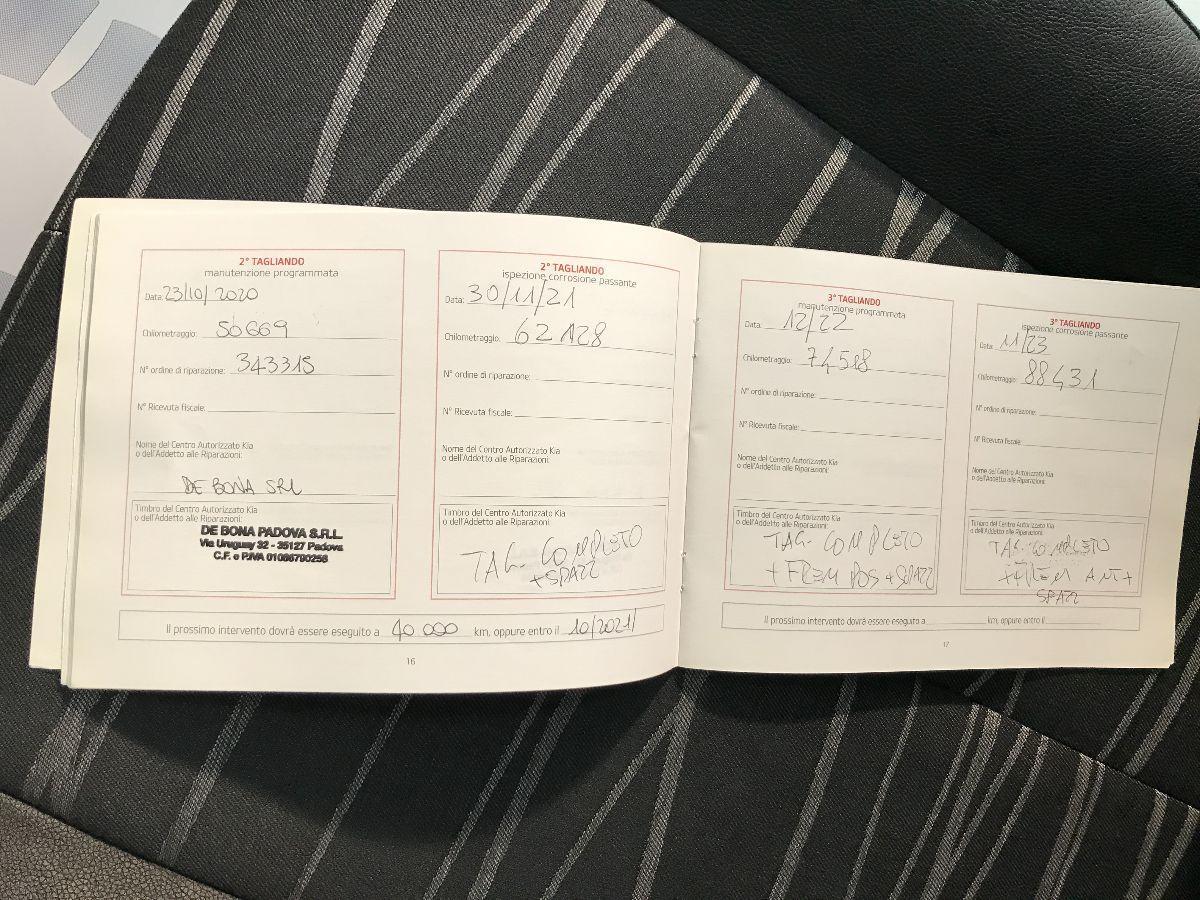 2° TAGLIANDO
manutenzione programmata
Data: 23/10/2020
Chilometraggio: 50669
N° ordine di riparazione: 343315
N° Ricevuta fiscale:
Nome del Centro Autorizzato Kia
o dell'Addetto alle Riparazioni:
DE BONA SRL
Timbro del Centro Autorizzato Kia
o dell'Addetto alle Riparazioni:
DE BONA PADOVA S.R.L.
Via Uruguay 32 - 35127 Padova
C.F. e P.IVA 01086790256
2° TAGLIANDO
ispezione corrosione passante
Data: 30/11/21
Chilometraggio: 62128
N° ordine di riparazione:
N° Ricevuta fiscale:
Nome del Centro Autorizzato Kia
o dell'Addetto alle Riparazioni:
Timbro del Centro Autorizzato Kia
o dell'Addetto alle Riparazioni:
TAG. COMPLETO
+SPAZZ
Il prossimo intervento dovrà essere eseguito a 40 000 km, oppure entro il 10/2021/
16
3° TAGLIANDO
manutenzione programmata
Data: 12/22
Chilometraggio: 74518
N° ordine di riparazione:
N° Ricevuta fiscale:
Nome del Centro Autorizzato Kia
o dell'Addetto alle Riparazioni:
Timbro del Centro Autorizzato Kia
o dell'Addetto alle Riparazioni:
TAG. COMPLETO
+ FREM POS + SPAZZ
3° TAGLIANDO
ispezione corrosione passante
Data: 11/23
Chilometraggio: 88431
N° ordine di riparazione:
N° Ricevuta fiscale:
Nome del Centro Autorizzato Kia
o dell'Addetto alle Riparazioni:
Timbro del Centro Autorizzato Kia
o dell'Addetto alle Riparazioni:
TAG. COMPLETO
+ FREM ANT +
SPAZZ
Il prossimo intervento dovrà essere eseguito a km, oppure entro il
17